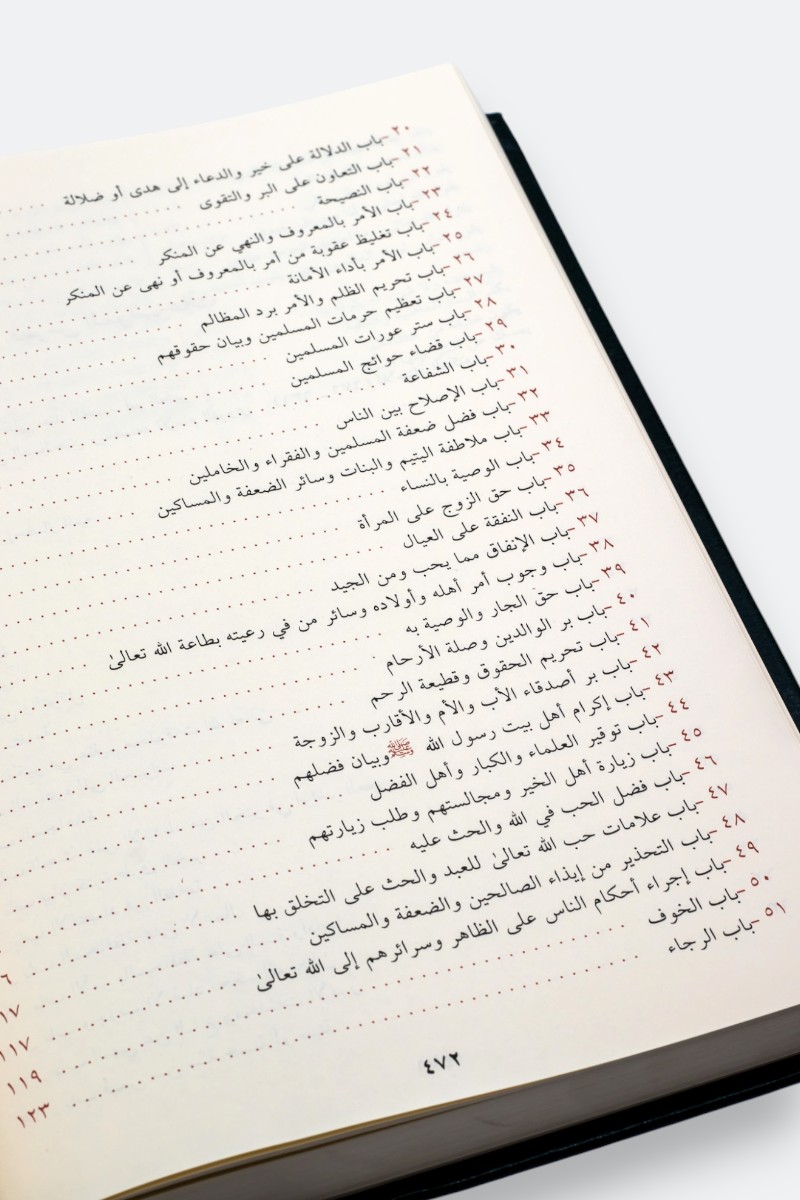 ٢٠-باب الدلالة على خير والدعاء إلى هدى أو ضلالة
٢١-باب التعاون على البر والتقوى
٢٢-باب النصيحة
٢٣-باب الأمر بالمعروف والنهي عن المنكر
٢٤-باب تغليظ عقوبة من أمر بالمعروف أو نهى عن المنكر
٢٥-باب الأمر بأداء الأمانة
٢٦-باب تحريم الظلم والأمر برد المظالم
٢٧-باب تعظيم حرمات المسلمين وبيان حقوقهم
٢٨-باب ستر عورات المسلمين
٢٩-باب قضاء حوائج المسلمين
٣٠-باب الشفاعة
٣١-باب الإصلاح بين الناس
٣٢-باب فضل ضعفة المسلمين والفقراء والخاملين
٣٣-باب ملاطفة اليتيم والبنات وسائر الضعفة والمساكين
٣٤-باب الوصية بالنساء
٣٥-باب حق الزوج على المرأة
٣٦-باب النفقة على العيال
٣٧-باب الإنفاق مما يحب ومن الجيد
٣٨-باب وجوب أمر أهله وأولاده وسائر من في رعيته بطاعة الله تعالىٰ
٣٩-باب حق الجار والوصية به
٤٠-باب بر الوالدين وصلة الأرحام
٤١-باب تحريم الحقوق وقطيعة الرحم
٤٢-باب بر أصدقاء الأب والأم والأقارب والزوجة
٤٣-باب إكرام أهل بيت رسول الله ﷺ وبيان فضلهم
٤٤-باب توقير العلماء والكبار وأهل الفضل
٤٥-باب زيارة أهل الخير ومجالستهم وطلب زيارتهم
٤٦-باب فضل الحب في الله والحث عليه
٤٧-باب علامات حب الله تعالىٰ للعبد والحث على التخلق بها
٤٨-باب التحذير من إيذاء الصالحين والضعفة والمساكين
٤٩-باب إجراء أحكام الناس على الظاهر وسرائرهم إلى الله تعالىٰ ١١٧
٥٠-باب الخوف ١١٩
٥١-باب الرجاء ١٢٣
٤٧٢